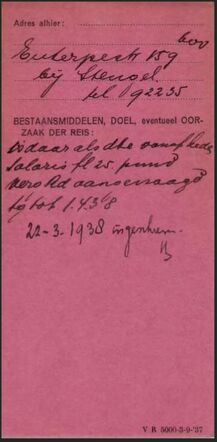 Adres alhier: bov
Euterpestr 159
bij Stengel
tel 92235
BESTAANSMIDDELEN, DOEL, eventueel OOR-
ZAAK DER REIS:
als dbe vanaf heden
salaris fl 25 p
verb aangevraagd
tot 1.4.38
22-3-1938
V R 5000-3-9-'37